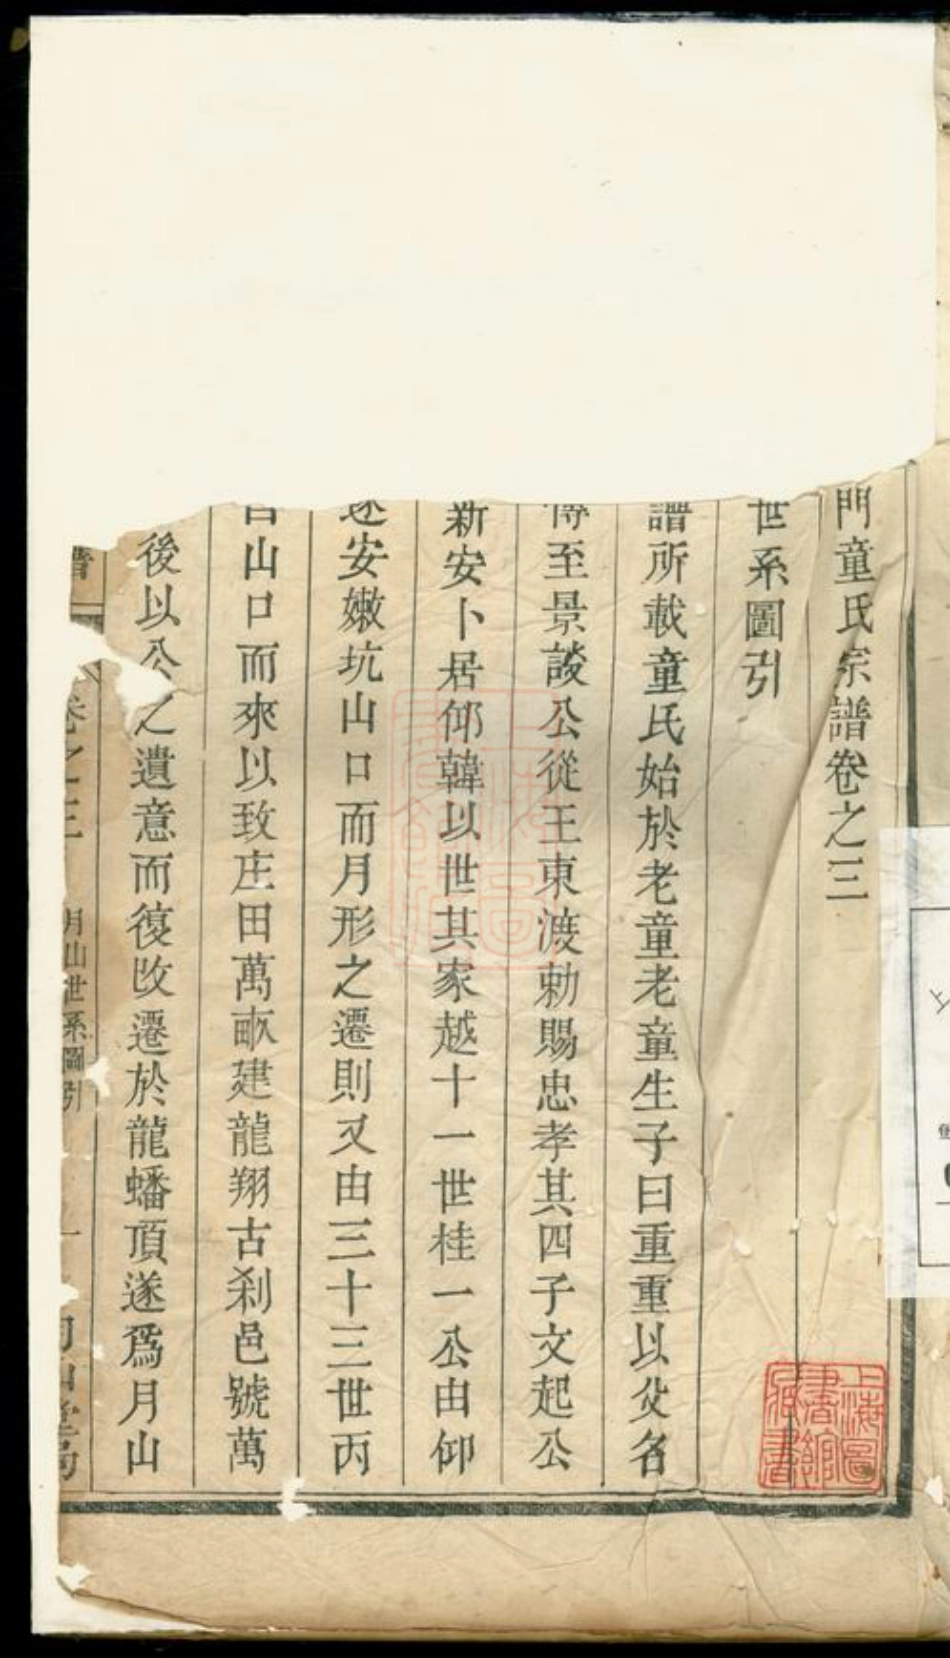 門童氏宗譜卷之三
世系圖引
譜所載童氏始於老童老童生子曰重重以父名
傳至景談公從王東渡勅賜忠孝其四子文起公
新安卜居仰韓以世其家越十一世桂一公由仰
遂安嫩坑山口而月形之遷則又由三十三世丙
山口而來以致庄田萬畝建龍翔古刹邑號萬
後以公之遺意而復改遷於龍蟠頂遂爲月山
譜
卷之三
月山世系圖引
一
上海圖書館藏書